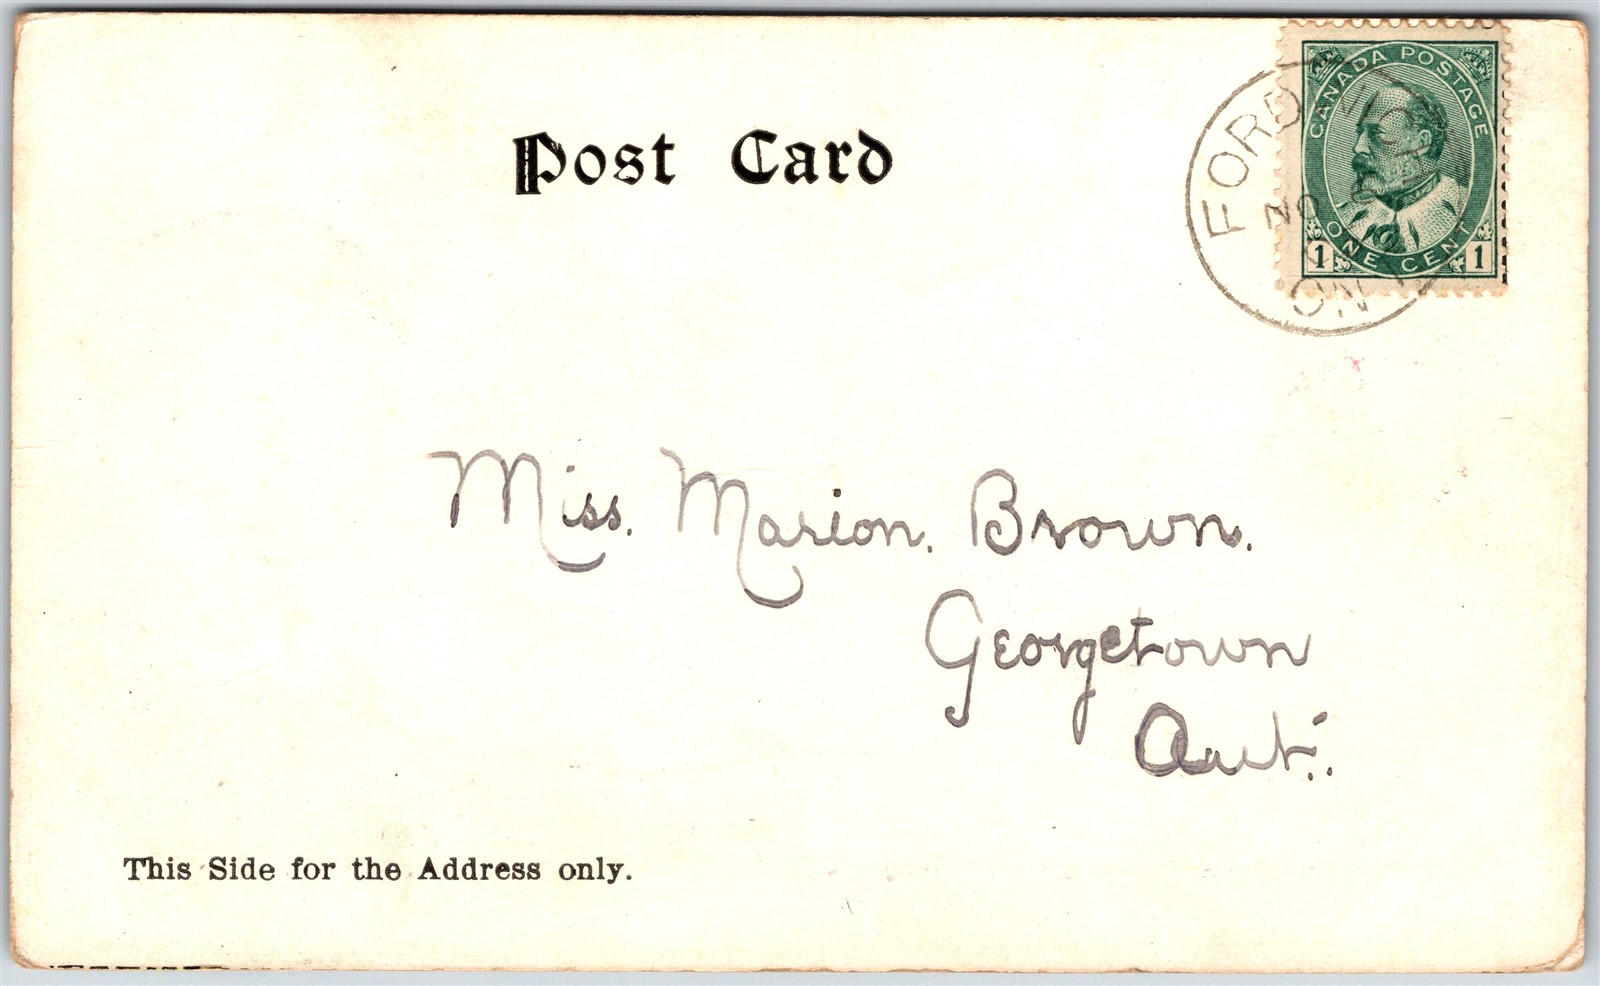 Post Card
CANADA POSTAGE
ONE CENT
1 1
FORDWO
NO
ON
Miss. Marion. Brown.
Georgetown
Ont.
This Side for the Address only.